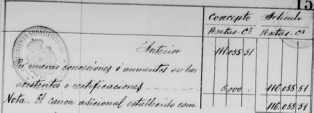 15
Concepto Artículo
Pesetas. Cs Pesetas. Cs
Anterior 111.055.51
Por nuevas concesiones ó aumentos en las
existentes ó rectificaciones 5.000 116.055.51
Nota. El canon adicional establecido com 116.055.51